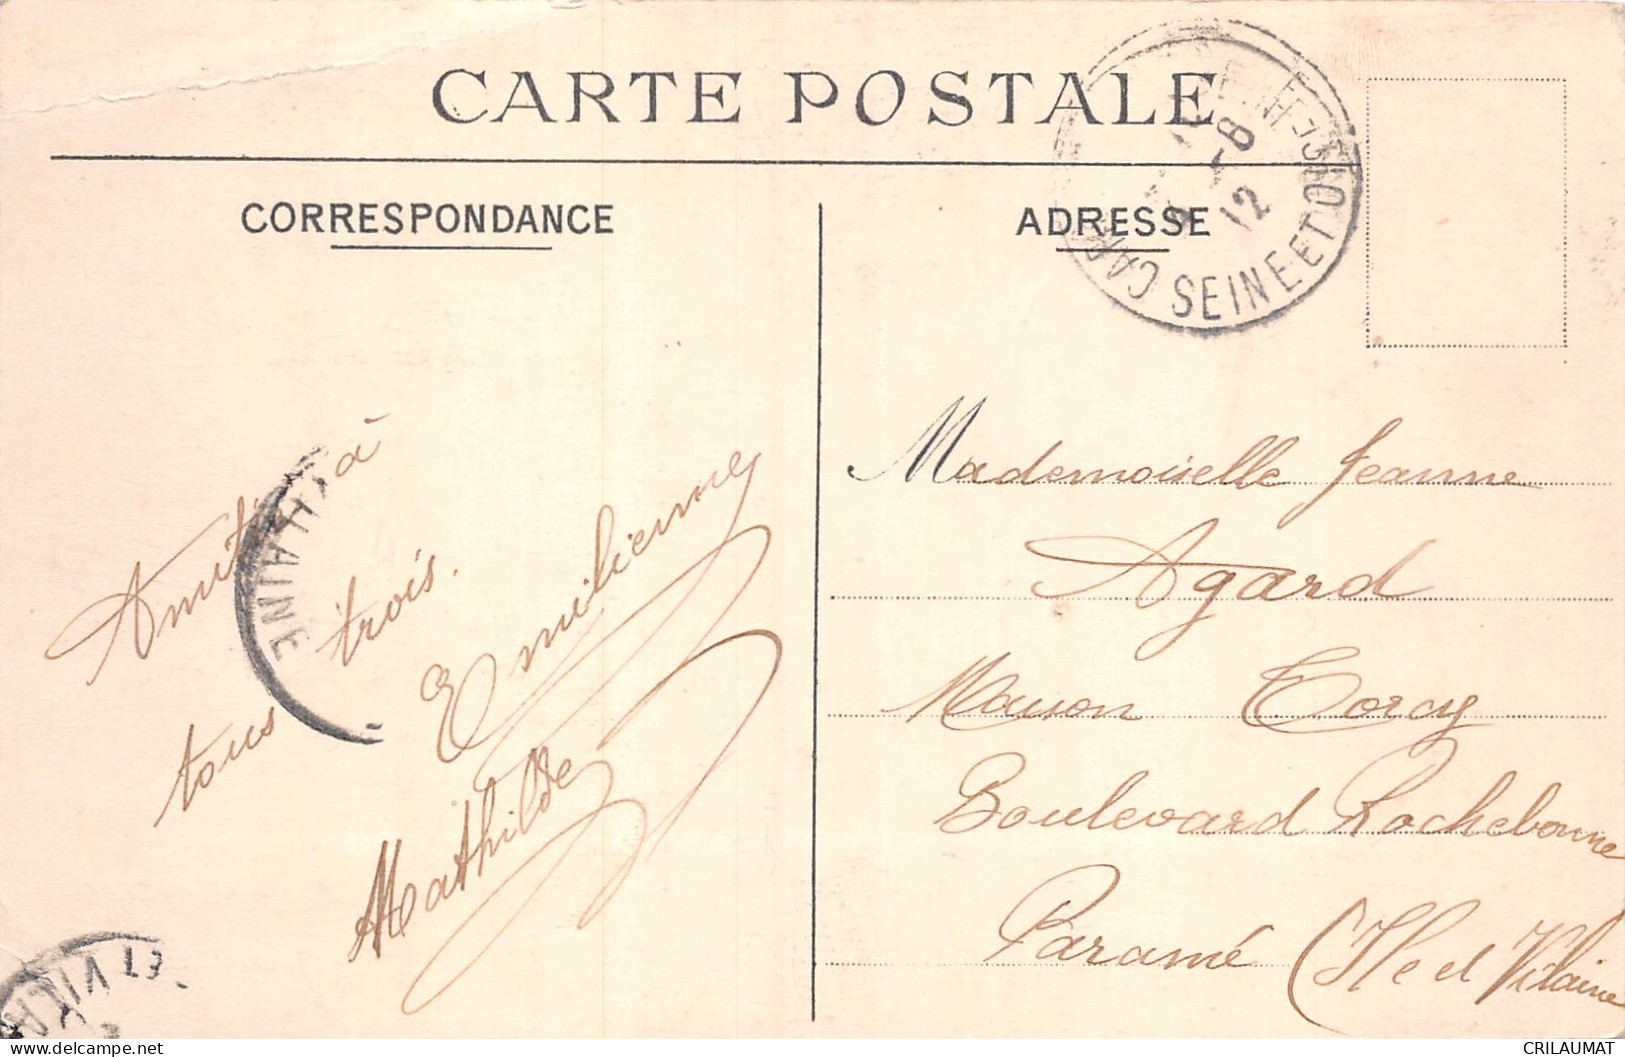 CARTE POSTALE
CORRESPONDANCE
ADRESSE
SEINE ET OISE
8
12
Amitiés à
tous trois.
Emilienne
Mathilde
VILAINE
ET VI
Mademoiselle Jeanne
Agard
Maison Torcy
Boulevard Rochebonne
Paramé (Ile et Vilaine
delcampe.net
CRILAUMAT